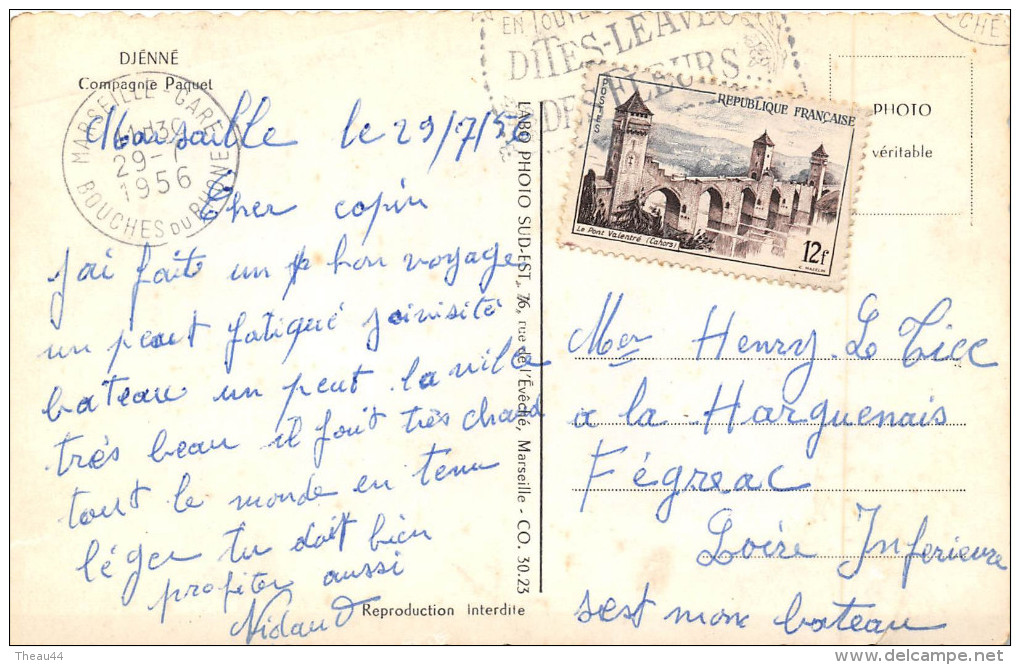 DJÉNNÉ
Compagnie Paquet
MARSEILLE-GARE
29-7
1956
BOUCHES DU RHONE
EN TOUTES
DITES-LE AVEC
DES FLEURS...
BOUCHES
POSTES
REPUBLIQUE FRANÇAISE
Le Pont Valentré (Cahors)
12f
PHOTO
véritable
Marsaille le 29/7/56
Cher copin
j'ai fait un bon voyage
un peut fatigué j'ai visité
bateau un peut la ville
très beau il fait très chaud
tout le monde en tenu
léger tu doit bien
profiter aussi
Reproduction interdite
LABO PHOTO SUD-EST, 76, rue de l'Évêché, Marseille - CO. 30.23
Mer Henry Le Ticc
a la Harguenais
Fégreac
Loire Inferieure
sest mon bateau
Theau44
www.delcampe.net